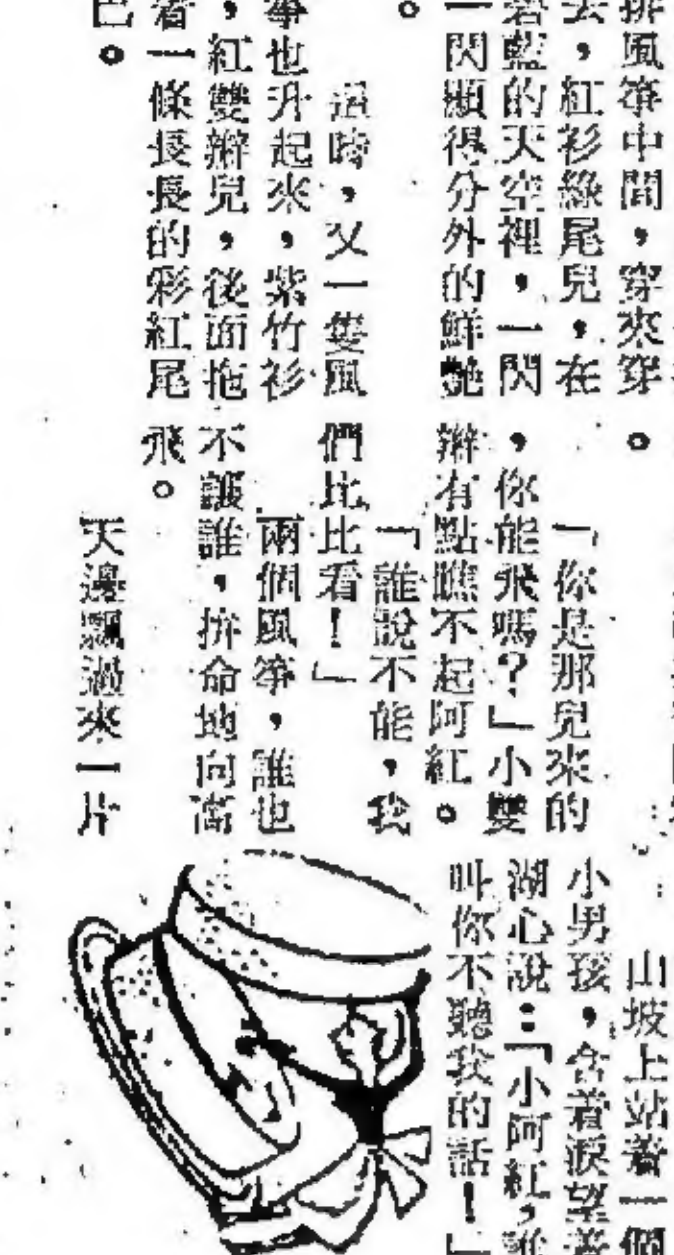 排風箏中間，穿來穿
去，紅衫綠尾兒，在
藍的天空裡，一閃
一閃顯得分外的鮮艷
。
這時，又一隻風
箏也升起來，紫竹衫
，紅雙辮兒，後面拖
着一條長長的彩紅尾
巴。
。
「你是那兒來的
，你能飛嗎？」小雙
辮有點瞧不起阿紅。
「誰說不能，我
們比比看！」
兩個風箏，誰也
不讓誰，拚命地向高
飛。
天邊飄過來一片
山坡上站着一個
小男孩，含着淚望着
湖心說：「小阿紅，誰
叫你不聽我的話！」